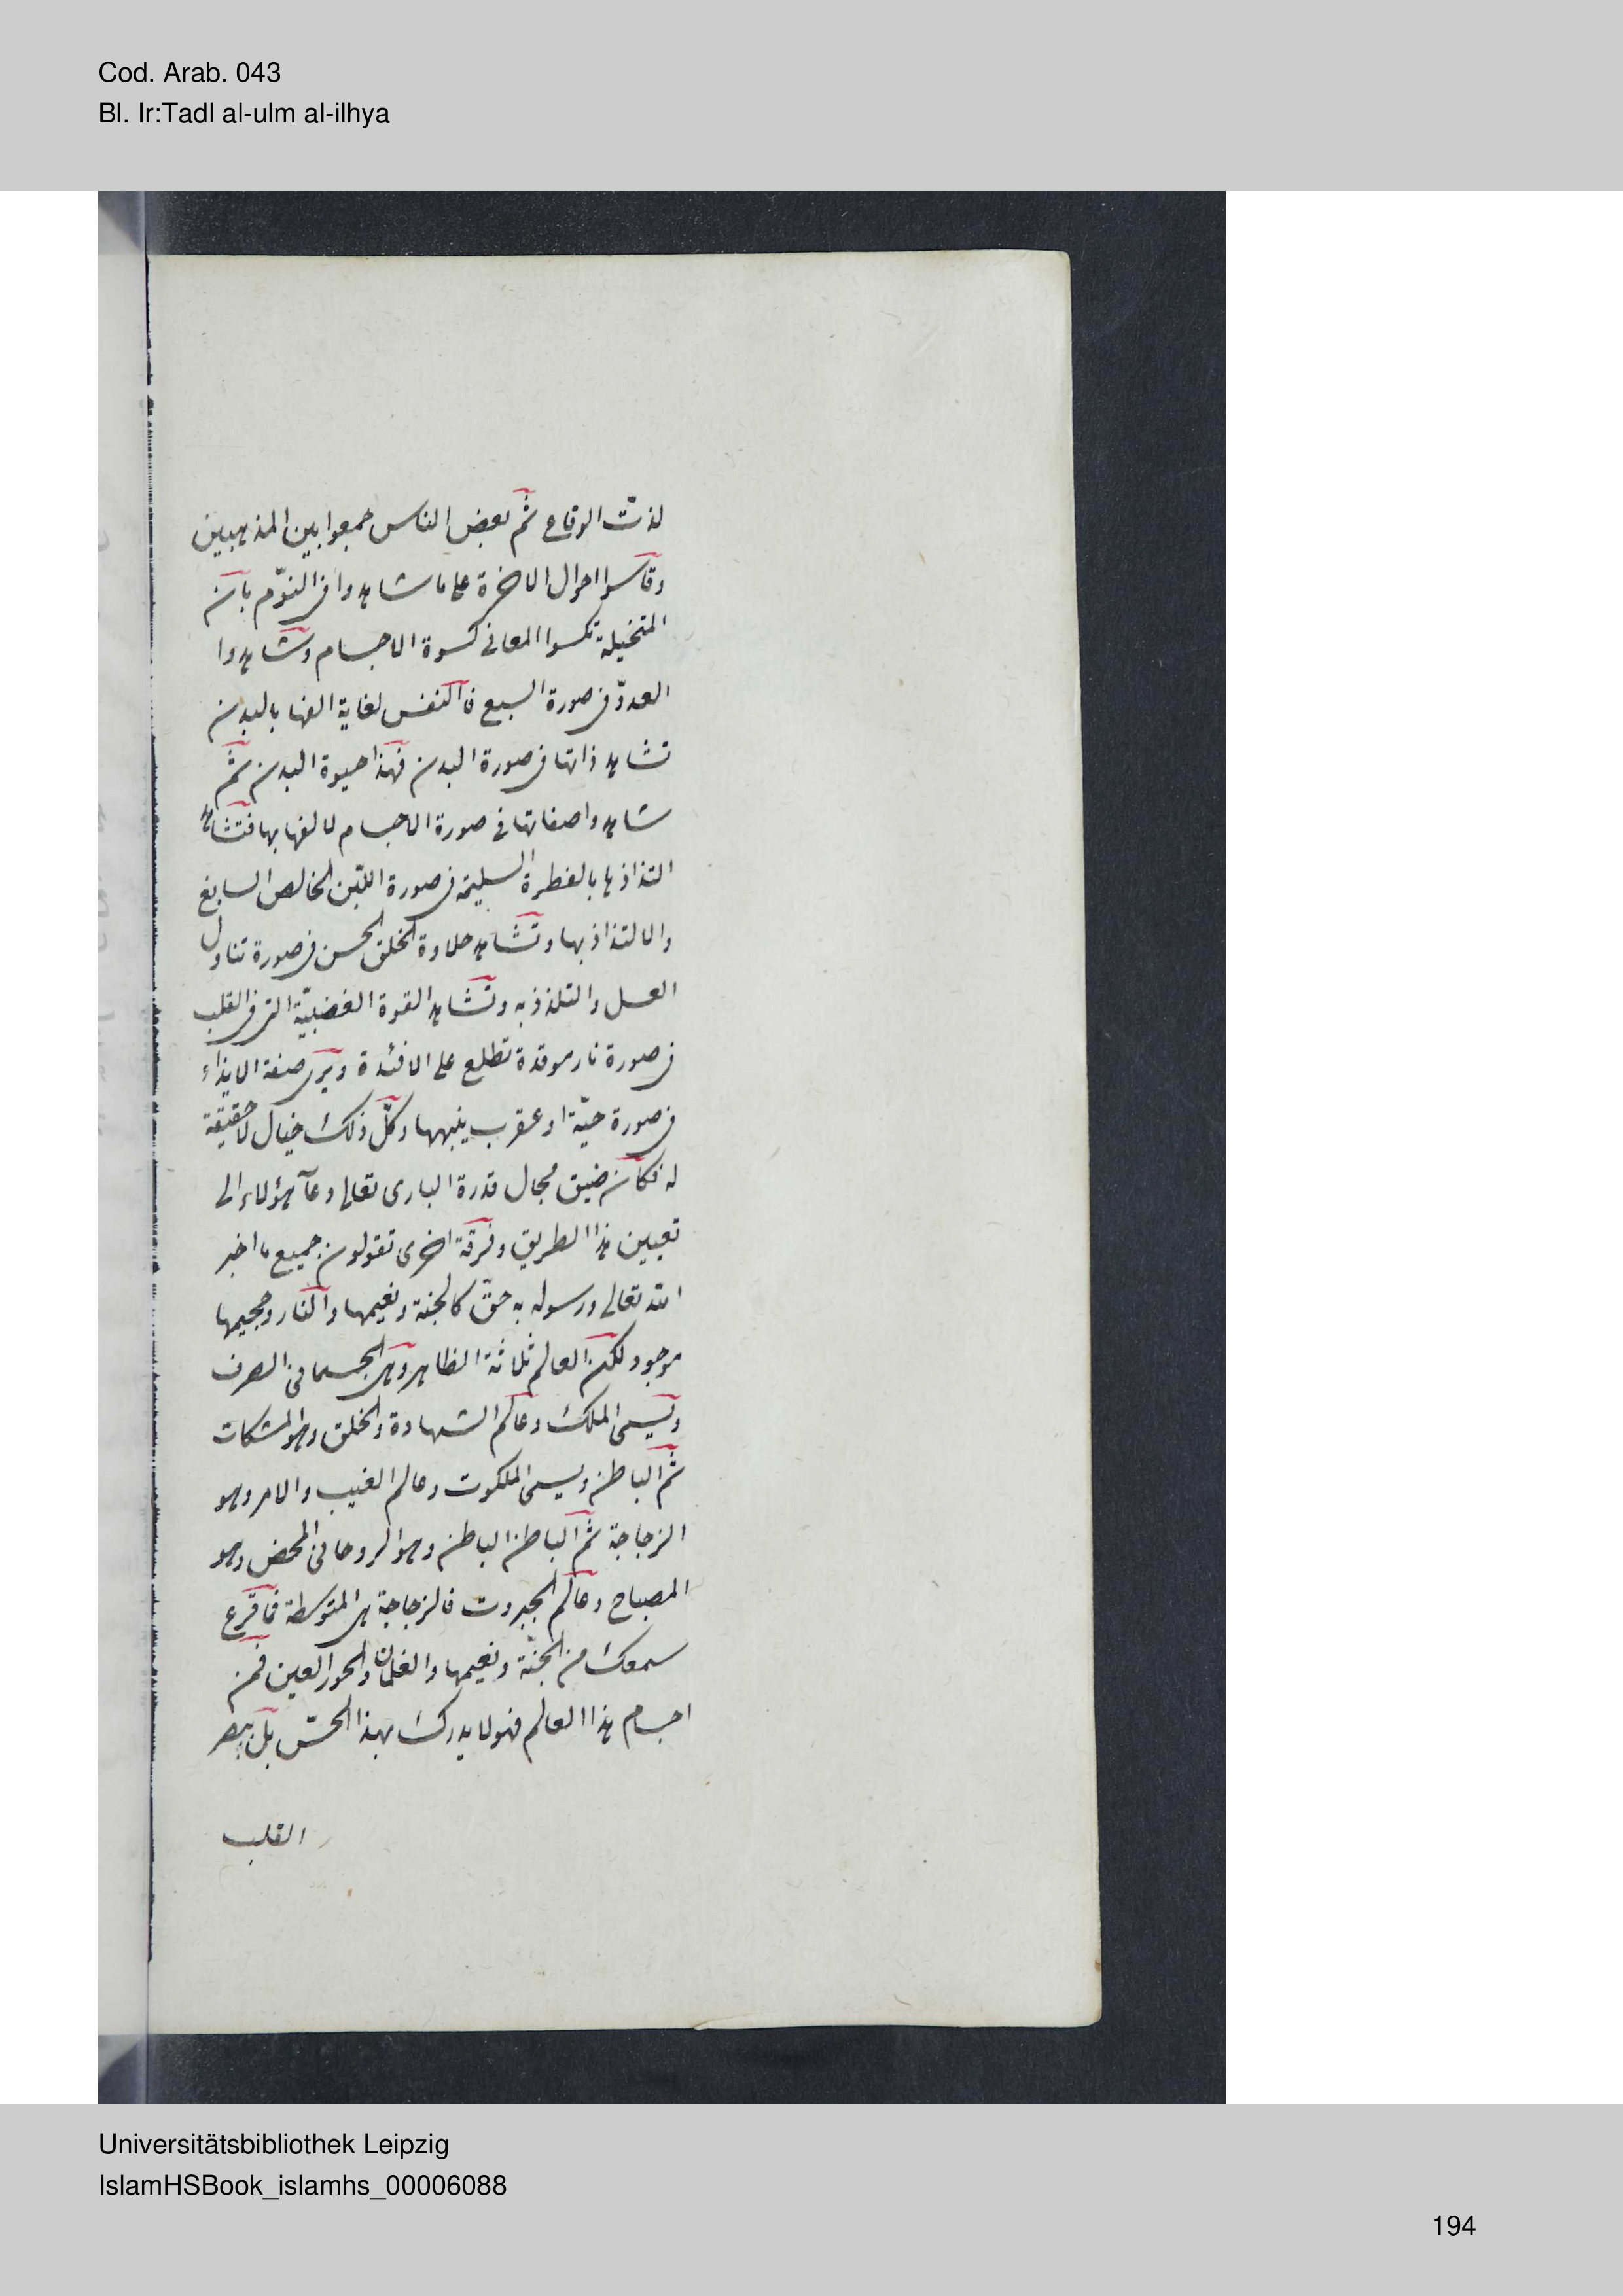 Cod. Arab. 043
Bl. Ir:Tadl al-ulm al-ilhya
لذت الوقاع ثم بعض الناس جمعوا بين المذهبين
وقاسوا احوال الاخرة على ما شاهدوا فى النوم بان
المتخيلة تكسوا المعانى كسوة الاجسام وشاهدوا
العدوّ فى صورة السبع فالنفس لغاية الفها بالبدن
تشاهد ذاتها فى صورة البدن فهذا حيوة البدن ثم
شاهدوا صفاتها فى صورة الاجسام لالفها بها فتشاهد
التذاذها بالفطرة السليمة فى صورة اللبن الخالص السايغ
والالتذاذ بها وتشاهد حلاوة الخلق الحسن فى صورة تناول
العسل والتلذذ به وتشاهد القوة الغضبيّة التى فى القلب
فى صورة نار موقدة تطلع على الافئدة ويرى صفة الايذاء
فى صورة حيّة او عقرب ينهبها وكلّ ذلك خيال لا حقيقة
له فكان ضيق مجال قدرة البارى تعالى دعا هؤلاء الى
تعيين هذا الطريق وفرقة اخرى تقولون جميع ما اخبر
الله تعالى ورسوله به حقّ كالجنة ونعيمها والنار وجحيمها
موجود لكن العالم ثلاثة الظاهر وهى الجسمانى الصرف
ويسمى الملك وعالم الشهادة والخلق وهو المشكات
ثم الباطن ويسمى الملكوت وعالم الغيب والامر وهو
الزجاجة ثم الباطن الباطن وهو الروحانى المحض وهو
المصباح وعالم الجبروت فالزجاجة هى المتوسطة فما قرع
سمعك من الجنّة ونعيمها والغلمان والحور العين فمن
اجسام هذا العالم فهو لا يدرك بهذا الحسّ بل ببصر
القلب
Universitätsbibliothek Leipzig
IslamHSBook_islamhs_00006088
194